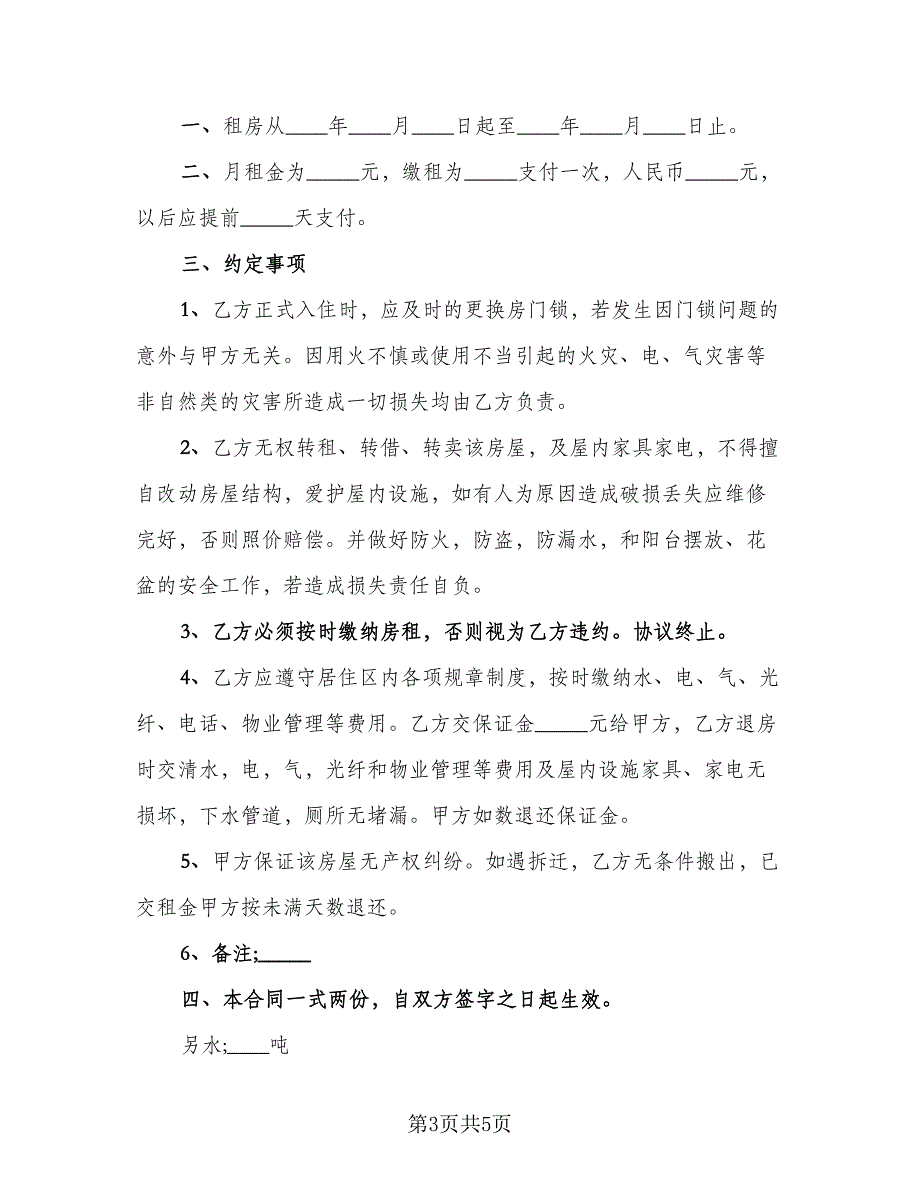 一、租房从____年____月____日起至____年____月____日止。
二、月租金为_____元，缴租为_____支付一次，人民币_____元，
以后应提前_____天支付。
三、约定事项
1、乙方正式入住时，应及时的更换房门锁，若发生因门锁问题的
意外与甲方无关。因用火不慎或使用不当引起的火灾、电、气灾害等
非自然类的灾害所造成一切损失均由乙方负责。
2、乙方无权转租、转借、转卖该房屋，及屋内家具家电，不得擅
自改动房屋结构，爱护屋内设施，如有人为原因造成破损丢失应维修
完好，否则照价赔偿。并做好防火，防盗，防漏水，和阳台摆放、花
盆的安全工作，若造成损失责任自负。
3、乙方必须按时缴纳房租，否则视为乙方违约。协议终止。
4、乙方应遵守居住区内各项规章制度，按时缴纳水、电、气、光
纤、电话、物业管理等费用。乙方交保证金_____元给甲方，乙方退房
时交清水，电，气，光纤和物业管理等费用及屋内设施家具、家电无
损坏，下水管道，厕所无堵漏。甲方如数退还保证金。
5、甲方保证该房屋无产权纠纷。如遇拆迁，乙方无条件搬出，已
交租金甲方按未满天数退还。
6、备注;_____
四、本合同一式两份，自双方签字之日起生效。
另水;____吨
第3页共5页